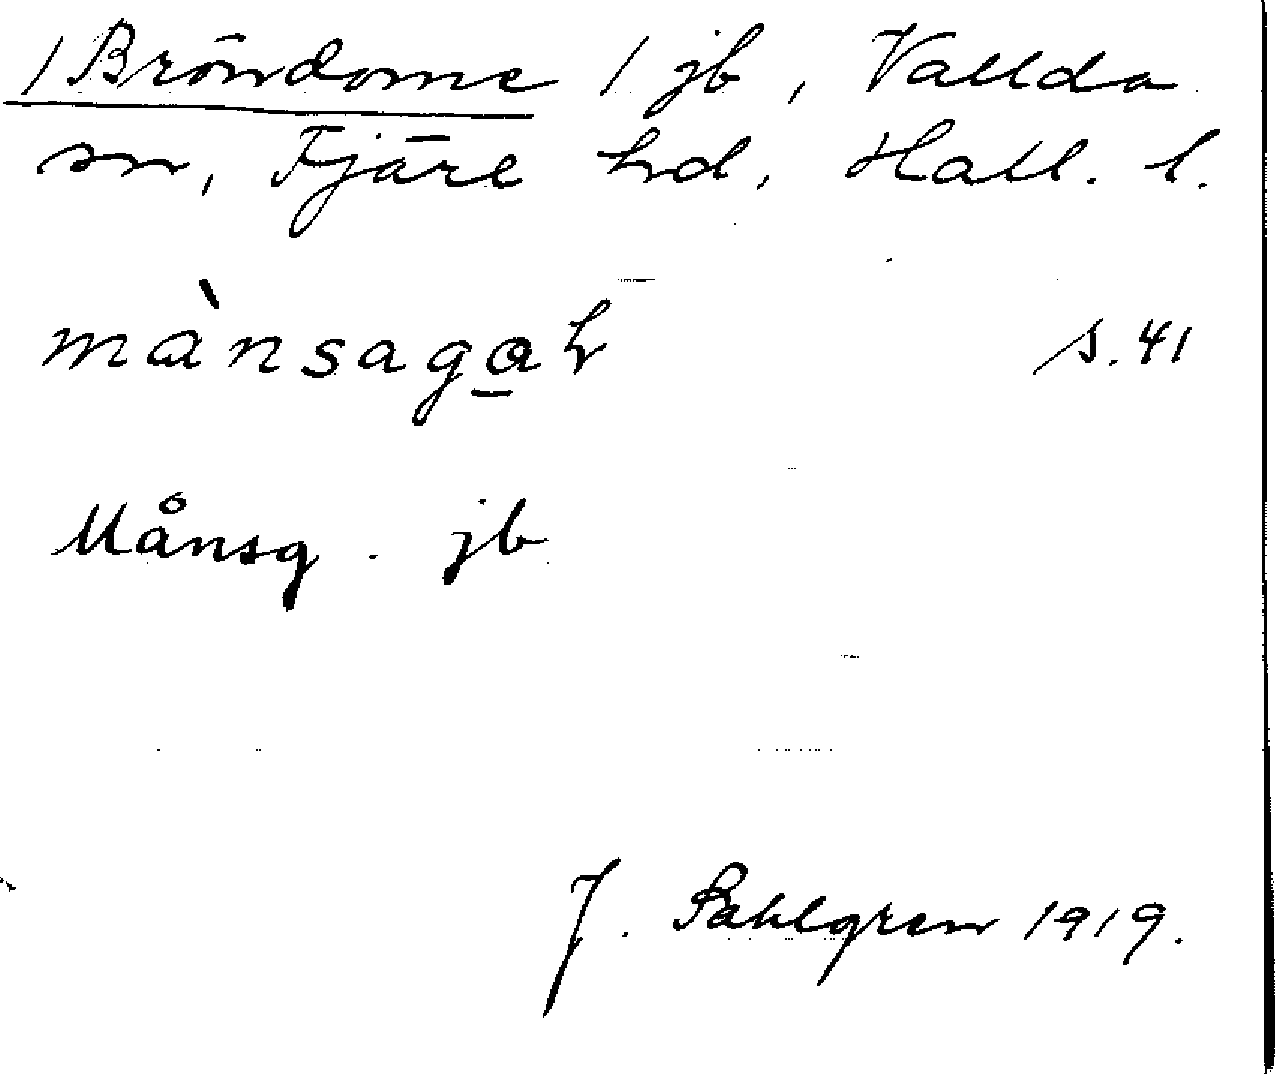 / Bröndome / jb, Vallda
sn, Fjäre hd, Hall. l.
mànsagah s. 41
Månsg. jb
J. Sahlgren 1919.